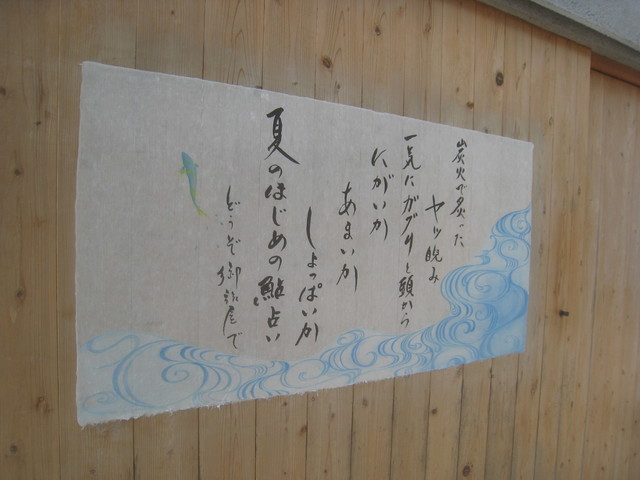 炭火で炙った
ヤツ睨み
一気にガブリと頭から
にがいか
あまいか
しょっぱいか
夏のはじめの鮎占い
どうぞ御弥尾で